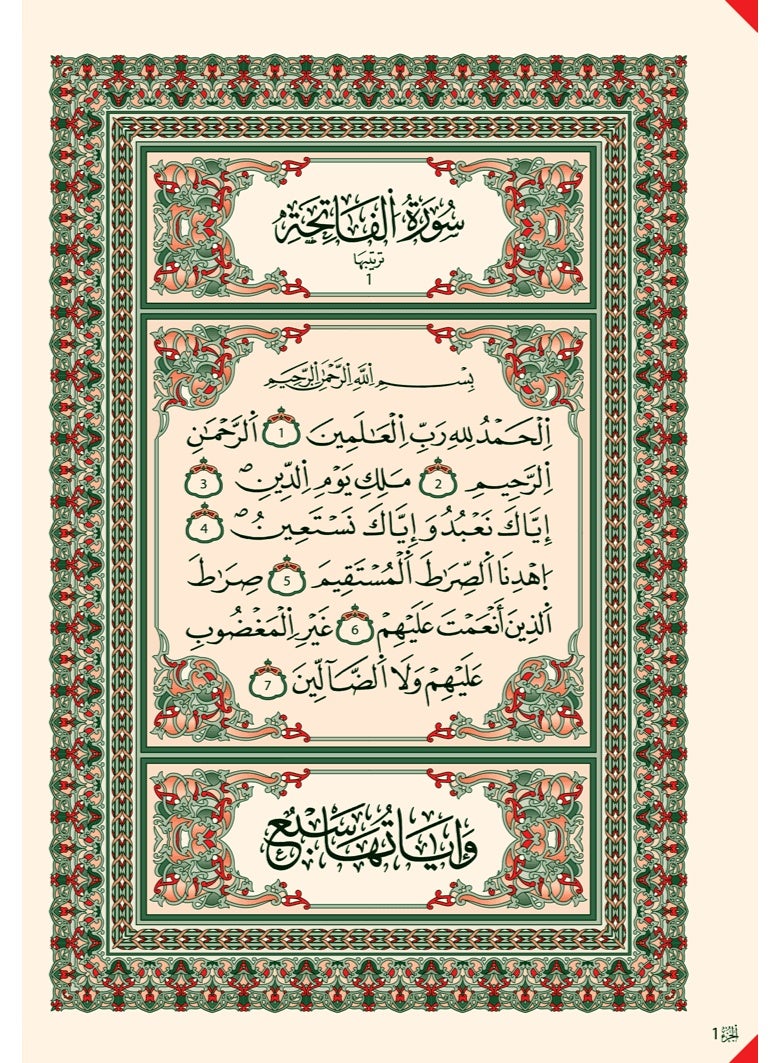 سُورَةُ الْفَاتِحَةِ
ترتيبها
1
بِسْمِ اِللَّهِ اِلرَّحْمَٰنِ اِلرَّحِيمِ
اِلْحَمْدُ لِلهِ رَبِّ اِلْعَٰلَمِينَ 1 اَلرَّحْمَٰنِ
اِلرَّحِيمِ 2 مَلِكِ يَوْمِ اِلدِّينِ ۖ 3
إِيَّاكَ نَعْبُدُ وَإِيَّاكَ نَسْتَعِينُ ۖ 4
اَهْدِنَا اَلصِّرَٰطَ اَلْمُسْتَقِيمَ 5 صِرَٰطَ
اَلذِينَ أَنْعَمْتَ عَلَيْهِمْ 6 غَيْرِ اِلْمَغْضُوبِ
عَلَيْهِمْ وَلَا اَلضَّآلِّينَ 7
وَءَايَاتُهَا سَبْعٌ
الجزء 1